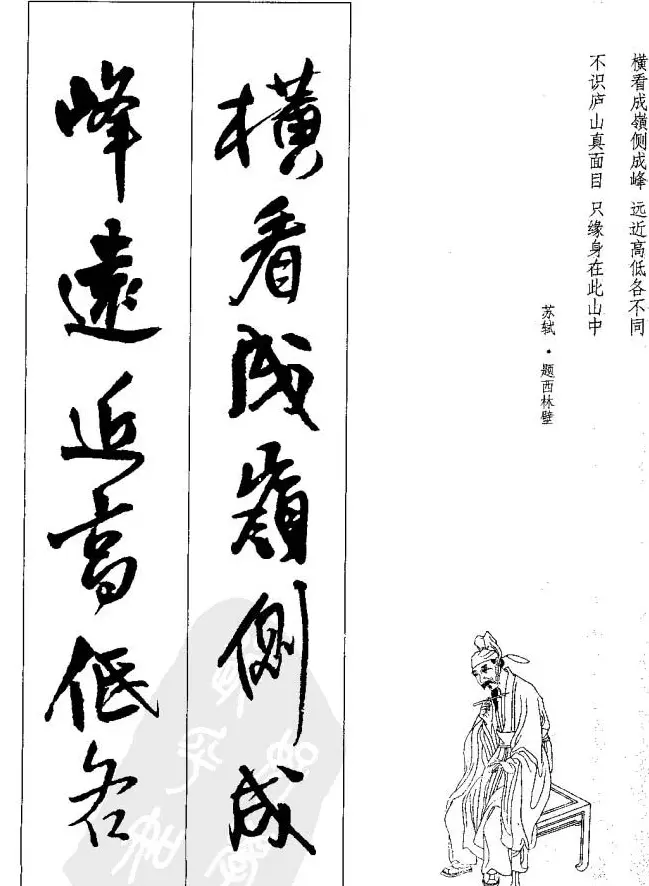 横看成嶺侧成峰 远近高低各不同
不识庐山真面目 只缘身在此山中
苏轼·题西林壁
橫看成嶺側成
峰遠近高低各